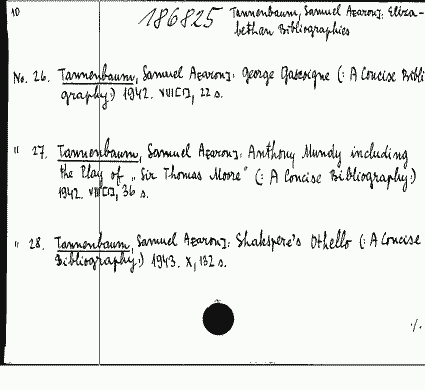 10
186825 Tannenbaum, Samuel A[aron]: Eliza-
bethan Bibliographies
No. 26. Tannenbaum, Samuel A[aron]: George Gascoigne (: A Concise Bibli-
ography:) 1942. VIII[!], 22 s.
" 27. Tannenbaum, Samuel A[aron]: Anthony Mundy including
the Play of „Sir Thomas Moore" (: A Concise Bibliography:)
1942. VIII[!], 36 s.
" 28. Tannenbaum, Samuel A[aron]: Shakspere's Othello (: A Concise
Bibliography:) 1943. X, 132 s.
./.